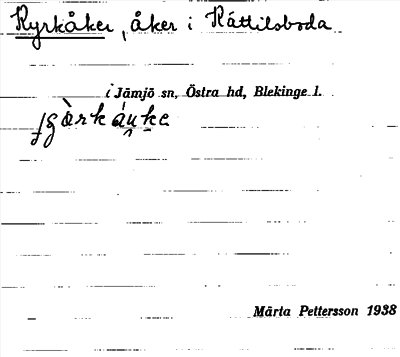 Kyrkåker, åker i Kättilsboda
i Jämjö sn, Östra hd, Blekinge l.
Märta Pettersson 1938